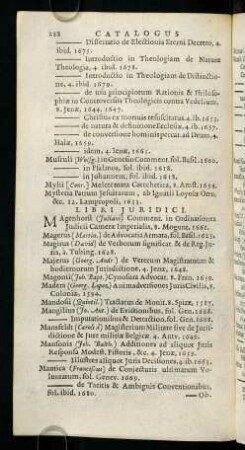 288 CATALOGUS
——— Dissertatio de Electionis Æterni Decreto, 4.
ibid. 1675.
——— Introductio in Theologiam de Natura
Theologiæ, 4. ibid. 1678.
——— Introductio in Theologiam de Distinctione,
4. ibid. 1679.
——— de usu principiorum Rationis & Philosophiæ
in Controversiis Theologicis contra Vedelium.
8. Jenæ, 1644. 1647.
——— Christus ex mortuis resuscitatus 4. ib. 1653.
——— de natura & definitione Ecclesiæ. 4. ib. 1657.
——— de conversione hominis peccat. ad Deum, 4.
Halæ, 1659.
——— idem. 4. Jenæ, 1661.
Musculi (Wolfg.) in Genesin Comment. fol. Basil. 1600.
——— in Psalmos, fol. ibid. 1618.
——— in Johannem, fol. ibid. 1618.
Mylii (Conr.) Meletemata Catechetica, 8. Amst. 1654.
Mysteria Patrum Jesuitarum, ab Ignatii Loyola Ore,
&c. 12. Lampropoli, 1633.
LIBRI JURIDICI.
Magenhorst Comment. in Ordinationem
Judicii Cameræ Imperialis, 8. Mogunt. 1601.
Magerus (Martin.) de Advocatia Armata, fol. Basil. 1625.
Magirus (David) de Verborum significat. & de Reg. Juris,
2. Tubing. 1628.
Majerus (Georg. And.) de Veterum Magistratuum &
hodiernorum Jurisdictione. 4. Jenæ, 1648.
Magonii (Joh. Bapt.) Cynosura Advocat. 8. Paris. 1659.
Maders (Georg. Lopez) Animadversiones Juris Civilis, 8.
Coloniæ, 1594.
Mandosii (Quintil.) Tractatus de Monit. 8. Spiræ, 1587.
Mangilius (Jo. Ant.) de Evictionibus, fol. Gen. 1668.
——— Imputationibus & Detraction. fol. Gen. 1668.
Mansfeldt (Caroli à) Magisterium Militare sive de Jurisdictione
& Jure militiæ Belgicæ. 4. Antv. 1649.
Mansonis (Joh. Balth.) Additiones ad aliquot Juris
Responsa Modest. Pistoris. &c. 4. Jenæ, 1659.
——— Illustres aliquot Juris Decisiones, 4. ib. 1663.
Mantica (Franciscus) de Conjecturis ultimarum Voluntatum.
fol. Genev. 1669.
——— de Tacitis & Ambiguis Conventionibus,
fol. ibid. 1680.